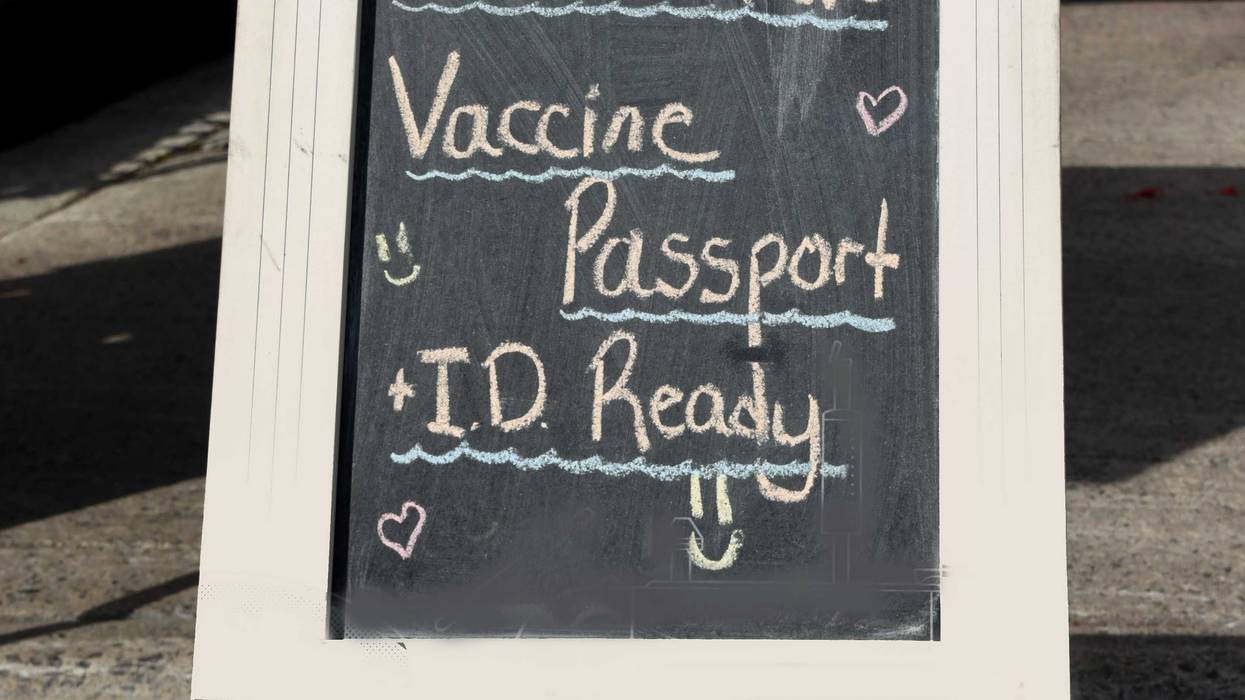 Vaccine
Passport
+ I.D. Ready